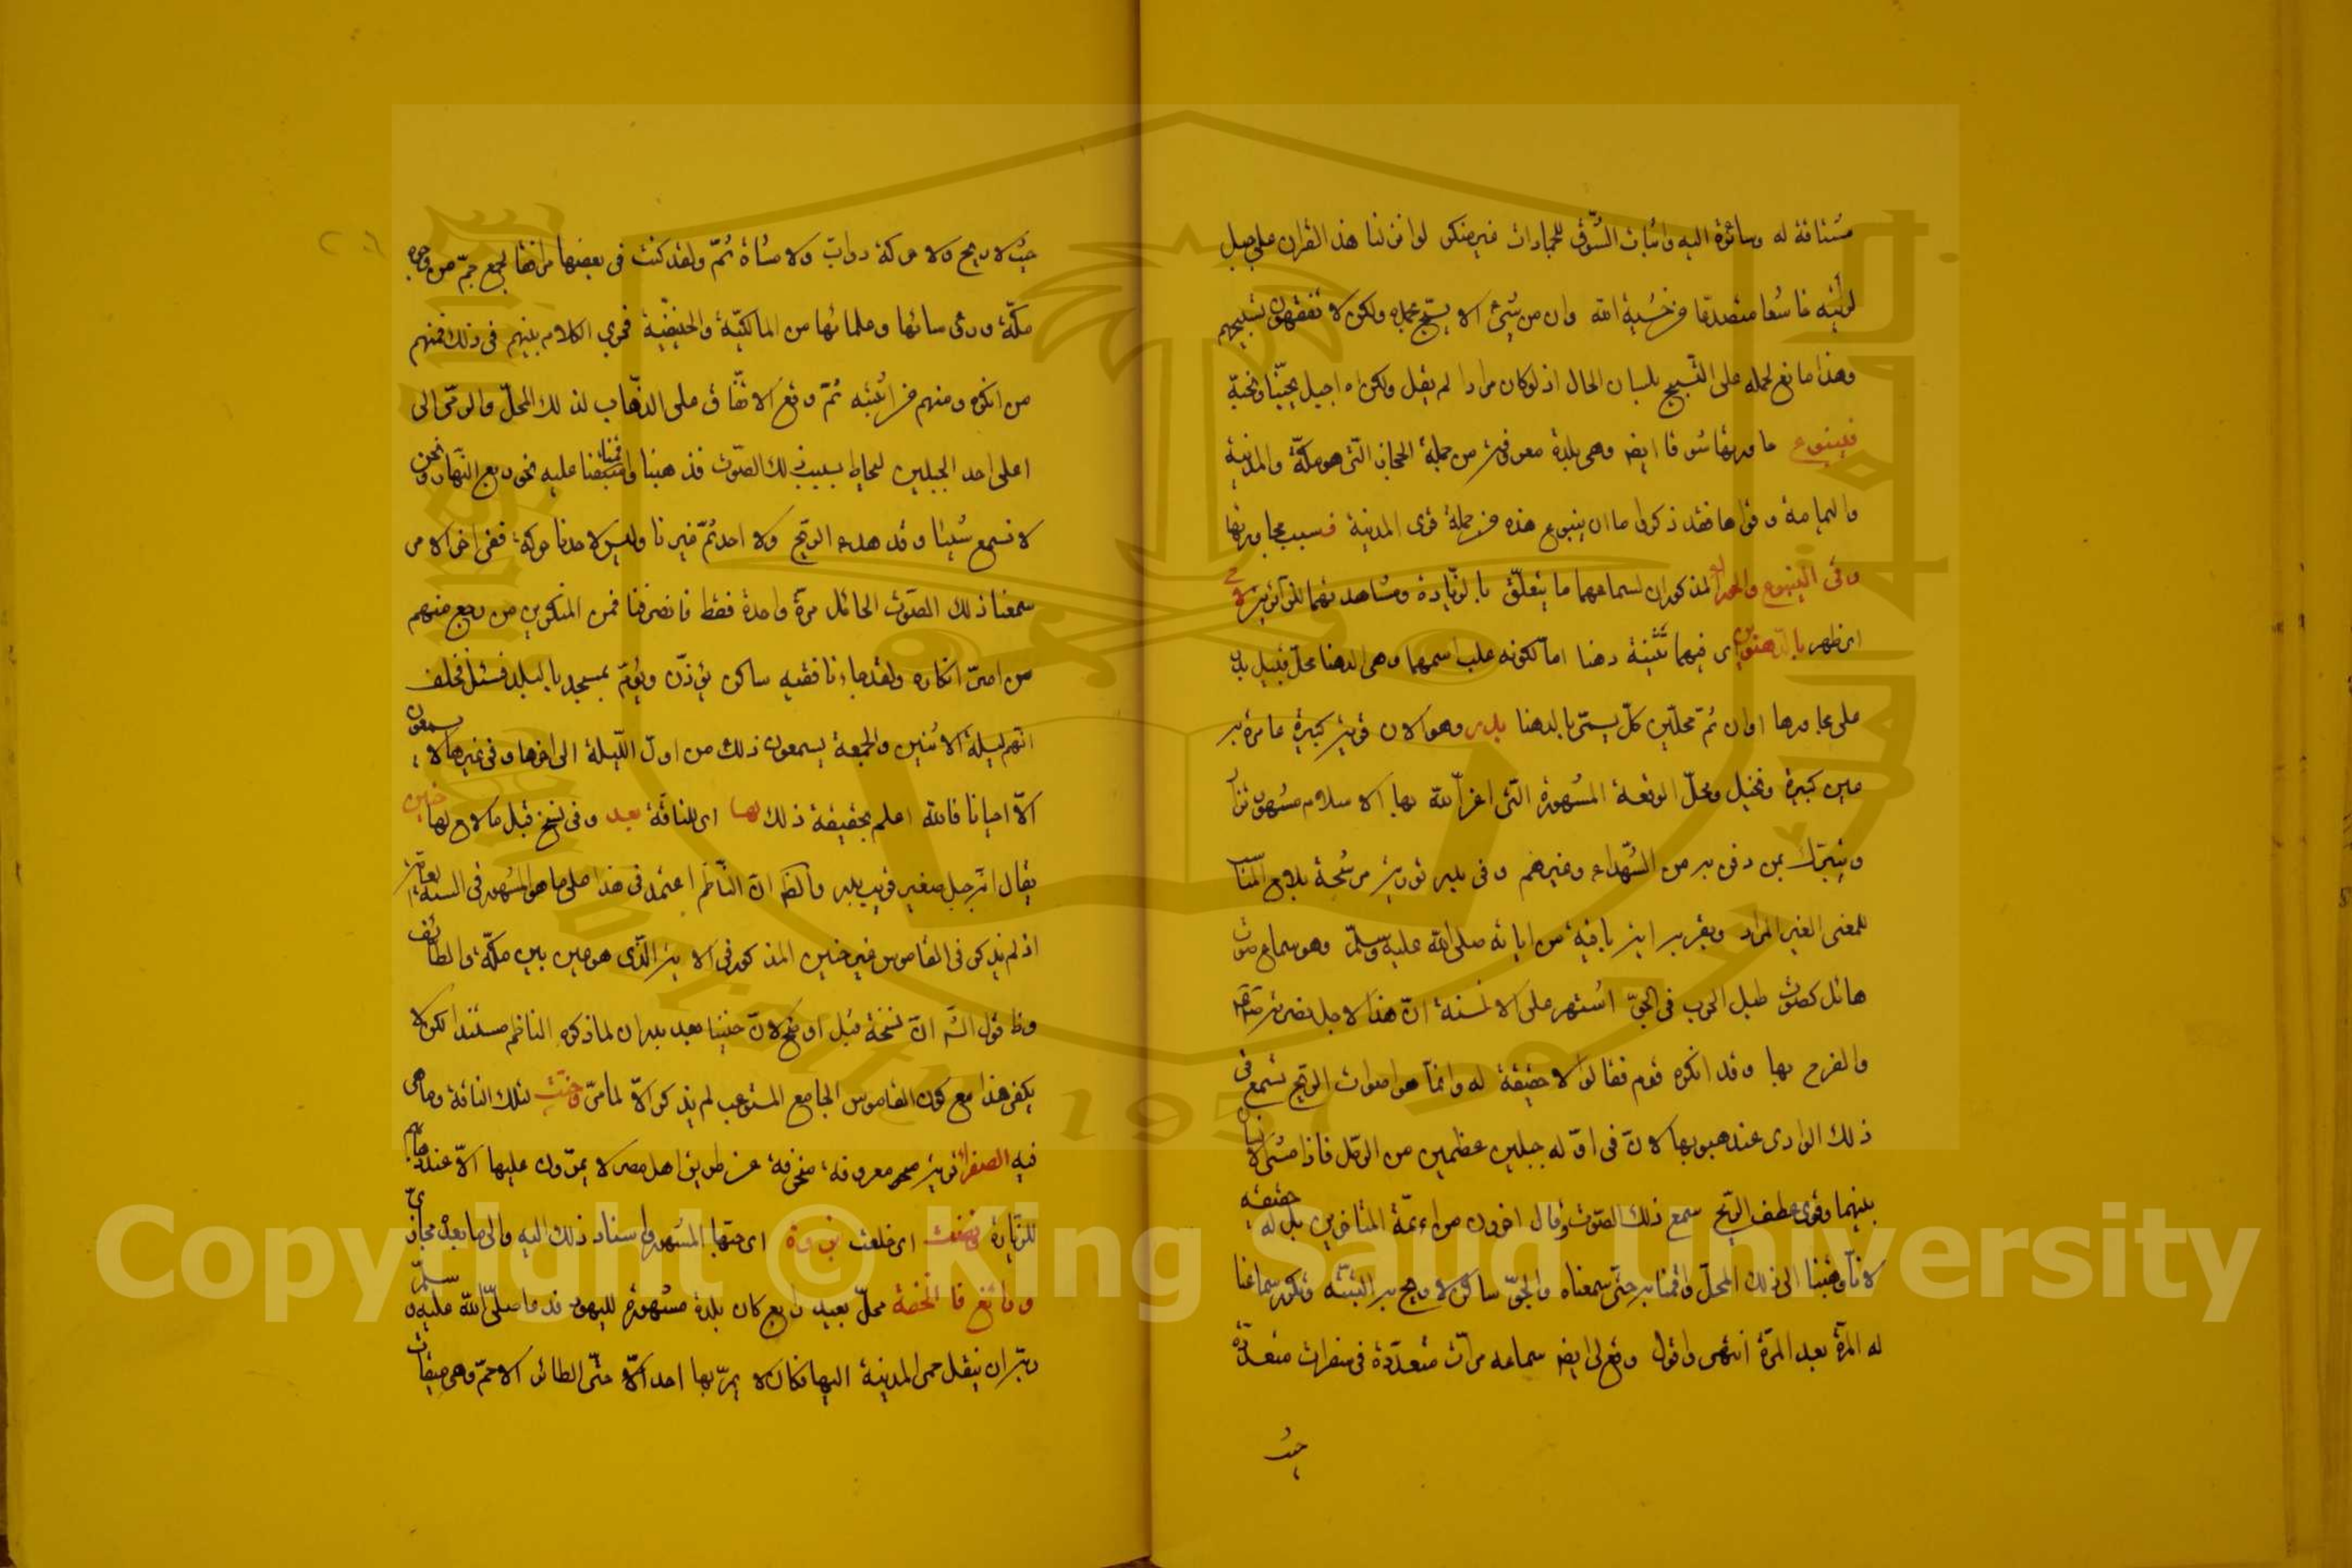 مشتاقة له وسائرة اليه واثبات الشوق للجمادات غير منكر لو انزلنا هذا القران على جبل
لرأيته خاشعا متصدعا من خشية الله وان من شئ الا يسبح بحمده ولكن لا تفقهون تسبيحهم
وهذا مانع لحمله على التسبيح بلسان الحال اذ لو كان مرادا لم يقل ولكن اه احبل يحبنا ونحبه
فينبوع ما قربها شوقا ايضا وهي بلدة معروفة من جملة الحجاز التي هو مكة والمدينة
واليمامة وقراها فقد ذكروا ما ان ينبوع هذه من جملة قرى المدينة فبسبب مجاورتها
وفي الينبوع والحورا المذكوران لسماعهما ما يتعلق بالزيادة ومشاهدتهما للزائرين
اي ظهر بالدهنوين اي فيهما تثنية دهنا اما لكونه غلب اسمهما وهي الدهنا محل قبيل بدر
على مجاورها او ان ثم محلين كل يسمى بالدهنا بدر وهو الان قرية كبيرة عامرة به
عين كبيرة ونخيل ومحل الوقعة المشهورة التي اعز الله بها الاسلام مشهور يزار
ويتبرك بمن دفن به من الشهداء وغيرهم وفي بدر تورية مرشحة بلاوع المناسب
للمعنى الغير المراد وبقربه اية باقية من اياته صلى الله عليه وسلم وهو سماع صوت
هائل كصوت طبل الحرب في الجو اشتهر على الالسنة ان هذا لاجل نصرته
والفرح بها وقد انكره قوم فقالوا لا حقيقة له وانما هو اصوات الريح تسمع في
ذلك الوادي عند هبوبها لان في اوله جبلين عظيمين من الرمل فاذا مشى الانسان
بينهما وقوى عطف الريح سمع ذلك الصوت وقال اخرون من ائمة المتاخرين بل له حقيقة
لانا وهبنا الى ذلك المحل واقمنا به حتى سمعناه والجو ساكن لا ريح به البتة وتكرر سماعنا
له المرة بعد المرة انتهى واقول وقع لي ايضا سماعه مرات متعددة في سفرات متعددة
حيث
حيث لا ريح ولا حركة دواب ولا مشاة ثم ولقد كنت في بعضها مرافقا لجمع جم من وجوه
مكة ورؤسائها وعلمائها من المالكية والحنفية فجرى الكلام بينهم في ذلك فمنهم
من انكره ومنهم من اثبته ثم وقع الاتفاق على الذهاب لذلك المحل والرقى الى
اعلى احد الجبلين ليحاط بسبب ذلك الصوت فذهبنا واقمنا عليه نحو ربع النهار ونحن
لا نسمع شيئا وقد هدء الريح ولا احد ثم غيرنا وليس لاحدنا حركة ففي اخر الامر
سمعنا ذلك الصوت الهائل مرة واحدة فقط فانصرفنا فمن المنكرين من رجع منهم
من اصر انكاره ولقد جاءنا فقيه ساكن يؤذن ويؤم بمسجد بالبلد فسئل فحلف
انهم ليلة الاثنين والجمعة يسمعون ذلك من اول الليلة الى اخرها وفي غيرها لا يسمعون
الا احيانا فالله اعلم بحقيقة ذلك لها اي للناقة بعد وفي نسخ قبل ما لاح لها حنين
يقال انه جبل صغير قريب بدر والظ ان الناظم اعتمد في هذا على ما هو المشهور في السنة العامة
اذ لم يذكر في القاموس غير حنين المذكور في الاية الذي هو عين بين مكة والطائف
وظ قول الش ان نسخة قبل اوضح لان حنينا بعد بدر ان لما ذكره الناظم مستندا لكن لا
يكفي هذا مع كون القاموس الجامع المستوعب لم يذكر الا لما مر وحنت لتلك الناقة وما هي
فيه الصفرا قرية معروفة منحرفة عن طريق اهل مصر لا يمرون عليها الا عند ذهابهم
للزيارة فنضت اي خلعت بزوة اي حبتها المشهور واسناد ذلك اليه والى ما بعده مجازي
ورابغ فالجحفة محل بعيد رابغ كان بلدة مشهورة لليهود فدعا صلى الله عليه وسلم
ربه ان ينقل حمى المدينة اليها فكان لا يمر بها احد الا حتى الطائر الا حم وهي ميقات